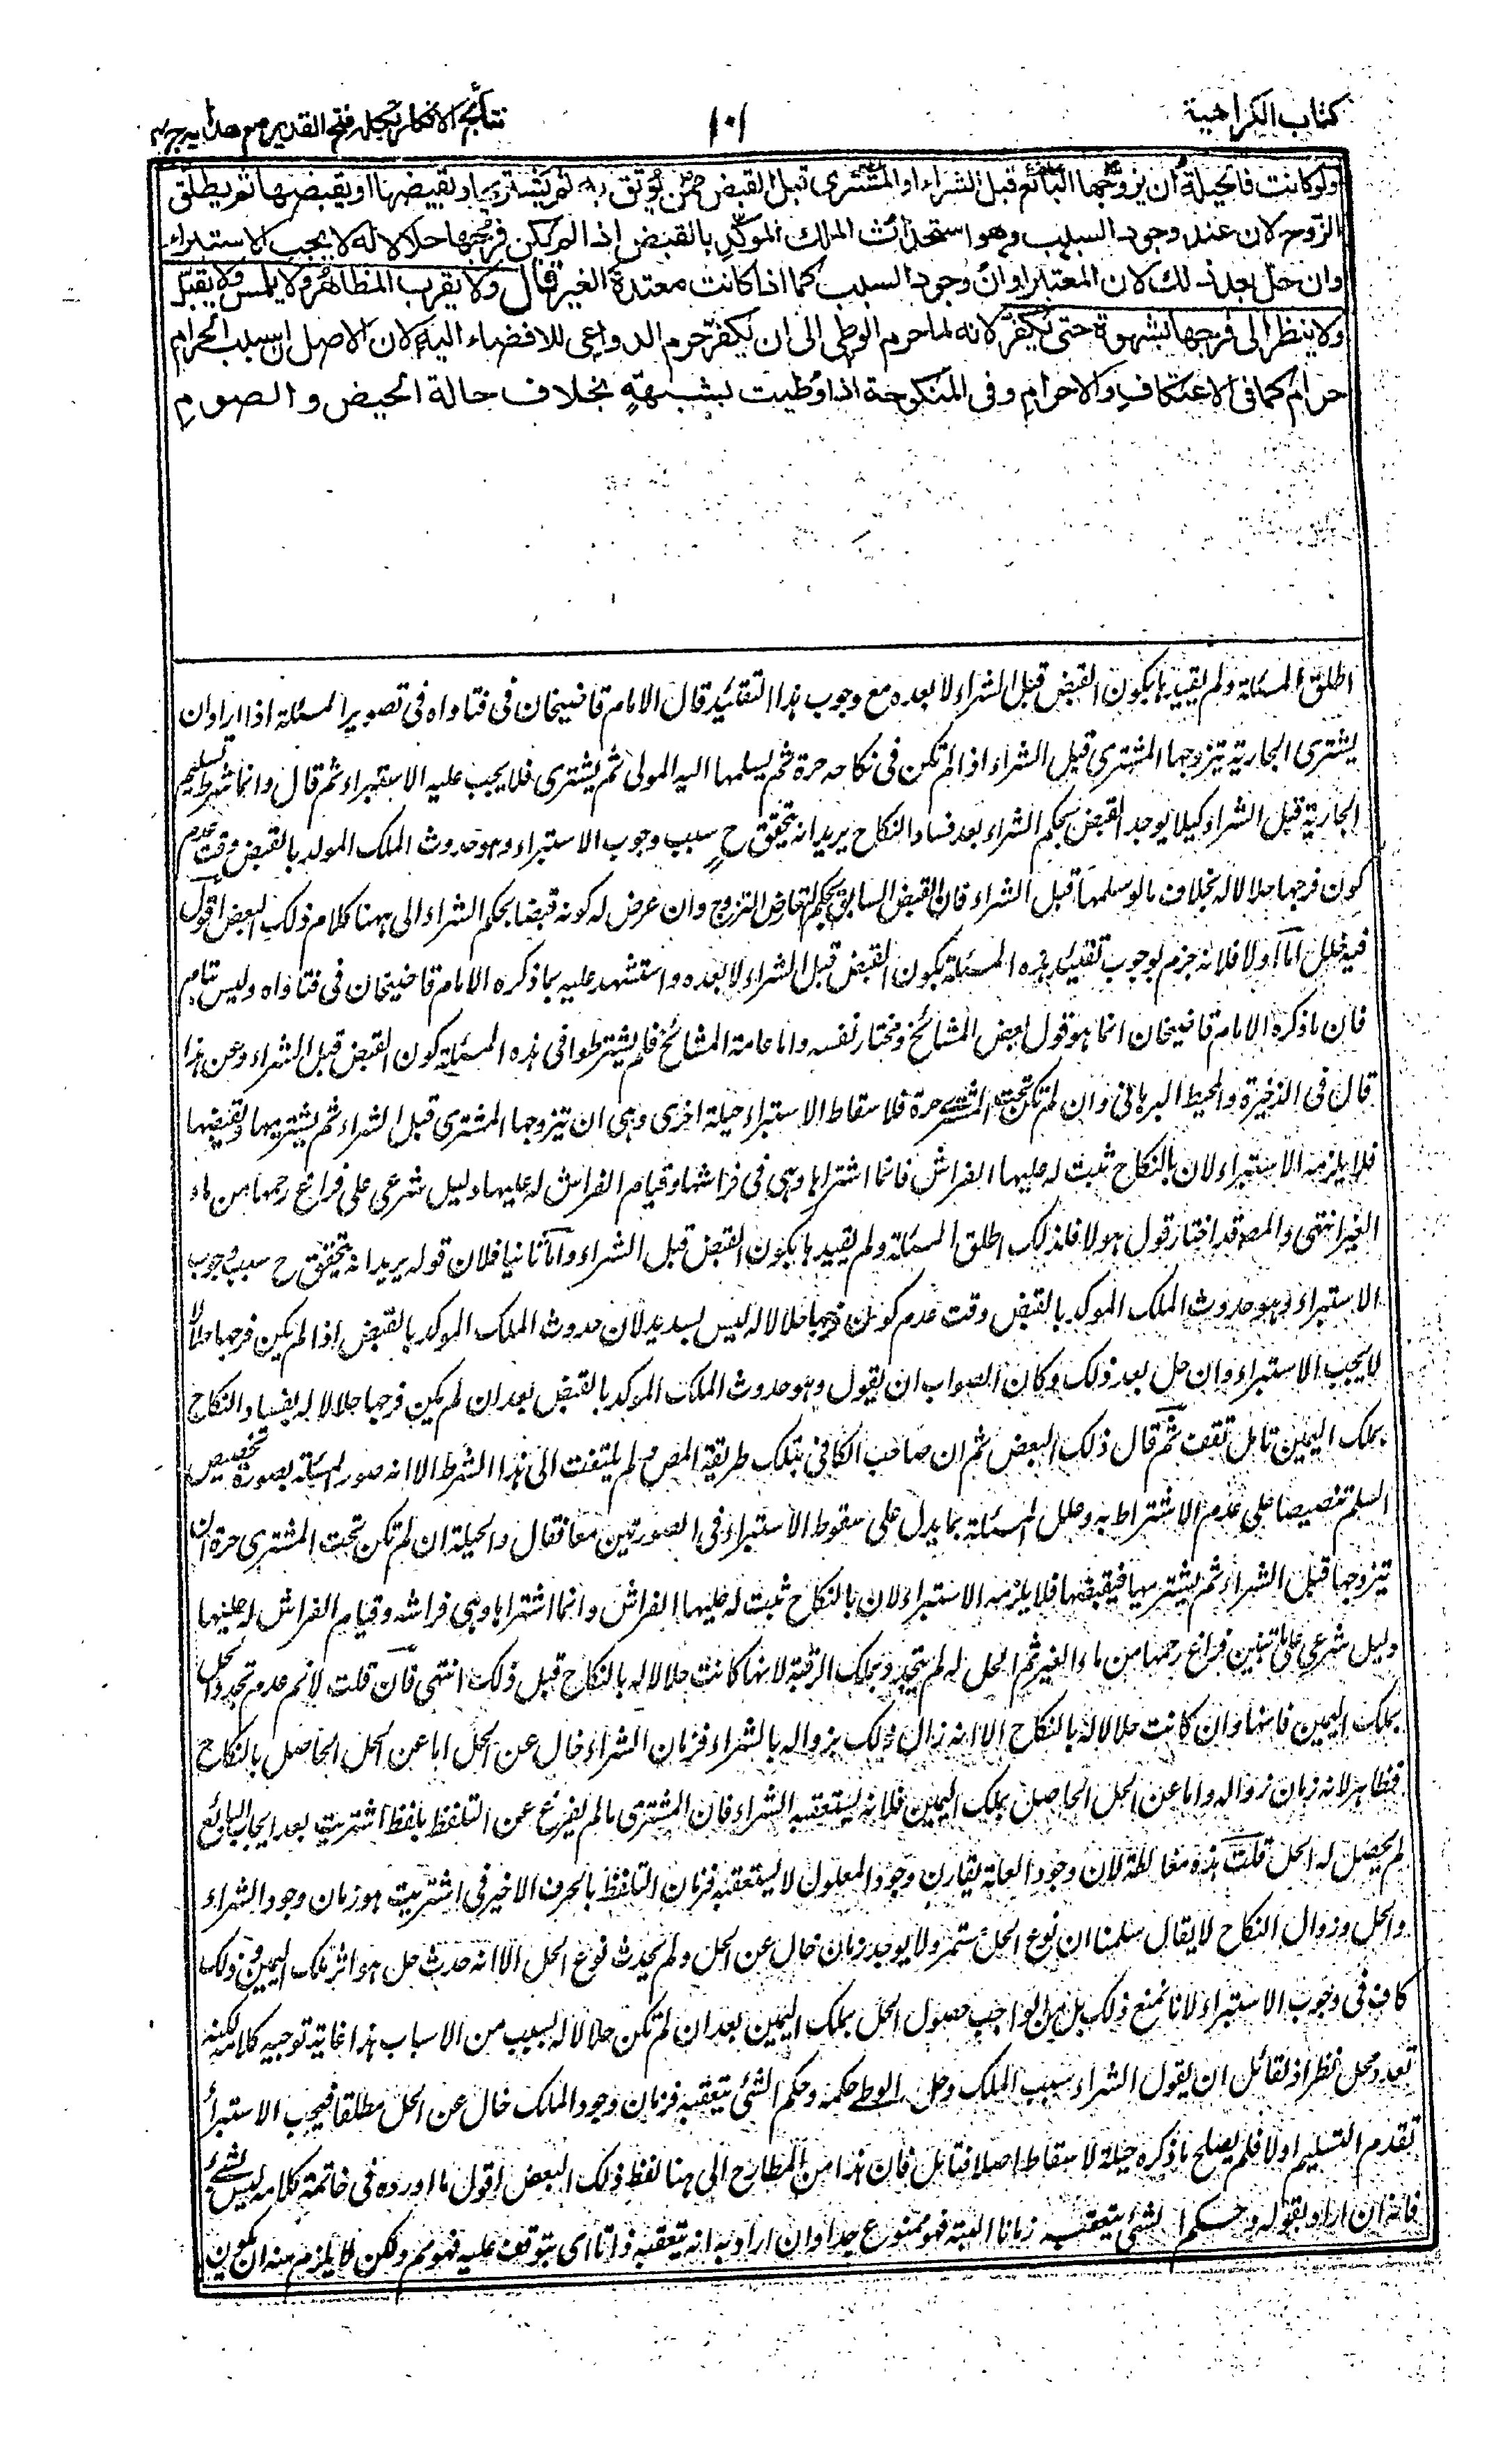 كتاب الكراهية
١٠١
نتائج الافكار تكملہ فتح القدير مع هدايہ ج ٤
ولو كانت فالحيلة ان يزوجها البائع قبل الشراء او المشترى قبل القبض ممن يوثق به ثم يشتريها ويقبضها او يقبضها ثم يطلق
الزوج لان عند وجود السبب وهو استحداث الملك المؤكد بالقبض اذا لم يكن فرجها حلالا له لا يجب الاستبراء
وان حل بعد ذلك لان المعتبر اوان وجود السبب كما اذا كانت معتدة الغير قال ولا يقرب المظاهر ولا يلمس ولا يقبل
ولا ينظر الى فرجها بشهوة حتى يكفر لانه لما حرم الوطى الى ان يكفر حرم الدواعى للافضاء اليه لان الاصل ان سبب الحرام
حرام كما فى الاعتكاف والاحرام وفى المنكوحة اذا وطيت بشبهة بخلاف حالة الحيض والصوم
اطلق المسئلة ولم يقيدها بكون القبض قبل الشراء لا بعده مع وجوب هذا التقئيد قال الامام قاضيخان فى فتاواه فى تصوير المسئلة اذا اراد ان
يشترى الجارية يتزوجها المشترى قبل الشراء اذا لم تكن فى نكاحه حرة ثم يسلمها اليه المولى ثم يشترى فلا يجب عليه الاستبراء ثم قال وانما شرط تسليم
الجارية قبل الشراء كيلا يوجد القبض بحكم الشراء بعد فساد النكاح يريد انه يتحقق ح سبب وجوب الاستبراء وهو حدوث الملك المولد بالقبض وقت عدم
كون فرجها حلالا له بخلاف ما لو سلمها قبل الشراء فان القبض السابق بحكم التزوج وان عرض له كونه قبضا بحكم الشراء الى ههنا كلام ذلك البعض اقول
فيه خلل اما اولا فلانه جزم بوجوب تقئيد هذه المسئلة بكون القبض قبل الشراء لا بعده واستشهد عليه بما ذكره الامام قاضيخان فى فتاواه وليس بتام
فان ما ذكره الامام قاضيخان انما هو قول بعض المشائخ ومختار نفسه واما عامة المشائخ فلم يشترطوا فى هذه المسئلة كون القبض قبل الشراء وعن هذا
قال فى الذخيرة والمحيط البرهانى وان لم تكن تحت المشترى حرة فلاسقاط الاستبراء حيلة اخرى وهى ان يتزوجها المشترى قبل الشراء ثم يشتريها ويقبضها
فلا يلزمه الاستبراء لان بالنكاح ثبت له عليها الفراش فانما اشتراها وهى فى فراشها وقيام الفراش له عليها دليل شرعى على فراغ رحمها من ماء
الغير انتهى والمصنف قد اختار قول هولاء فلذلك اطلق المسئلة ولم يقيدها بكون القبض قبل الشراء واما ثانيا فلان قوله يريد انه يتحقق ح سبب وجوب
الاستبراء وهو حدوث الملك المؤكد بالقبض وقت عدم كون فرجها حلالا له ليس بسديد لان حدوث الملك المؤكد بالقبض اذا لم يكن فرجها حلالا
لا يجب الاستبراء وان حل بعد ذلك وكان الصواب ان يقول وهو حدوث الملك المؤكد بالقبض بعد ان لم يكن فرجها حلالا له بفساد النكاح
بملك اليمين تامل تقف ثم قال ذلك البعض ثم ان صاحب الكافى سلك طريقة المص ولم يلتفت الى هذا الشرط الا انه صور المسئلة بصورة تخصيص
السلم تنصيصا على عدم الاشتراط به وعلل المسئلة بما يدل على سقوط الاستبراء فى الصورتين معا فقال والحيلة ان لم تكن تحت المشترى حرة ان
يتزوجها قبل الشراء ثم يشتريها فيقبضها فلا يلزمه الاستبراء لان بالنكاح ثبت له عليها الفراش وانما اشتراها وهى فراشه وقيام الفراش له عليها
دليل شرعى على تبين فراغ رحمها من ماء الغير ثم الحل له لم يتجدد بملك الرقبة لانها كانت حلالا له بالنكاح قبل ذلك انتهى فان قلت لا نم عدم تجدد الحل
بملك اليمين فانها وان كانت حلالا له بالنكاح الا انه زال ذلك بزواله بالشراء فزمان الشراء خال عن الحل اما عن الحل الحاصل بالنكاح
فظاهر لانه زمان زواله واما عن الحل الحاصل بملك اليمين فلانه يستعقبه الشراء فان المشترى ما لم يفرغ عن التلفظ بلفظ اشتريت بعد ايجاب البائع
لم يحصل له الحل قلت هذه مغالطة لان وجود العلة يقارن وجود المعلول لا يستعقبه فزمان التلفظ بالحرف الاخير فى اشتريت هو زمان وجود الشراء
والحل وزوال النكاح لا يقال سلمنا ان نوع الحل مستمر ولا يوجد زمان خال عن الحل ولم يحدث نوع الحل الا انه حدث حل هو اثر ملك اليمين وذلك
كاف فى وجوب الاستبراء لانا نمنع ذلك بل الواجب حصول الحل بملك اليمين بعد ان لم تكن حلالا له بسبب من الاسباب هذا غاية توجيه كلامه لكنه
بعد محل نظر اذ لقائل ان يقول الشراء سبب الملك وحل الوطى حكمه وحكم الشئ يتعقبه فزمان وجود الملك خال عن الحل مطلقا فيجب الاستبراء
بتقدم التسليم اولا فلم يصلح ما ذكره حيلة لاسقاط اصلا فتامل فان هذا من المطارح الى هنا لفظ ذلك البعض اقول ما اورده فى خاتمة كلامه ليس بشئ
فانه ان اراد بقوله وحكم الشئ يتعقبه زمانا البتة فهو ممنوع جدا وان اراد به انه يتعقبه ذاتا اى يتوقف عليه فهو مسلم ولكن لا يلزم منه ان يكون